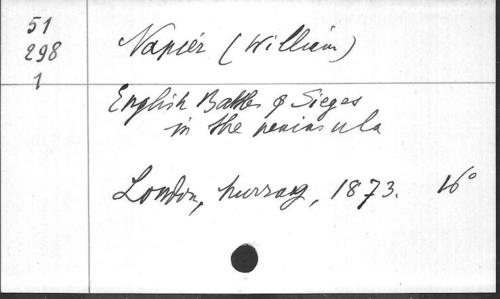 51
298
1
Napier (William)
English Battles & Sieges
in the peninsula
London, Murray, 1873. 16°